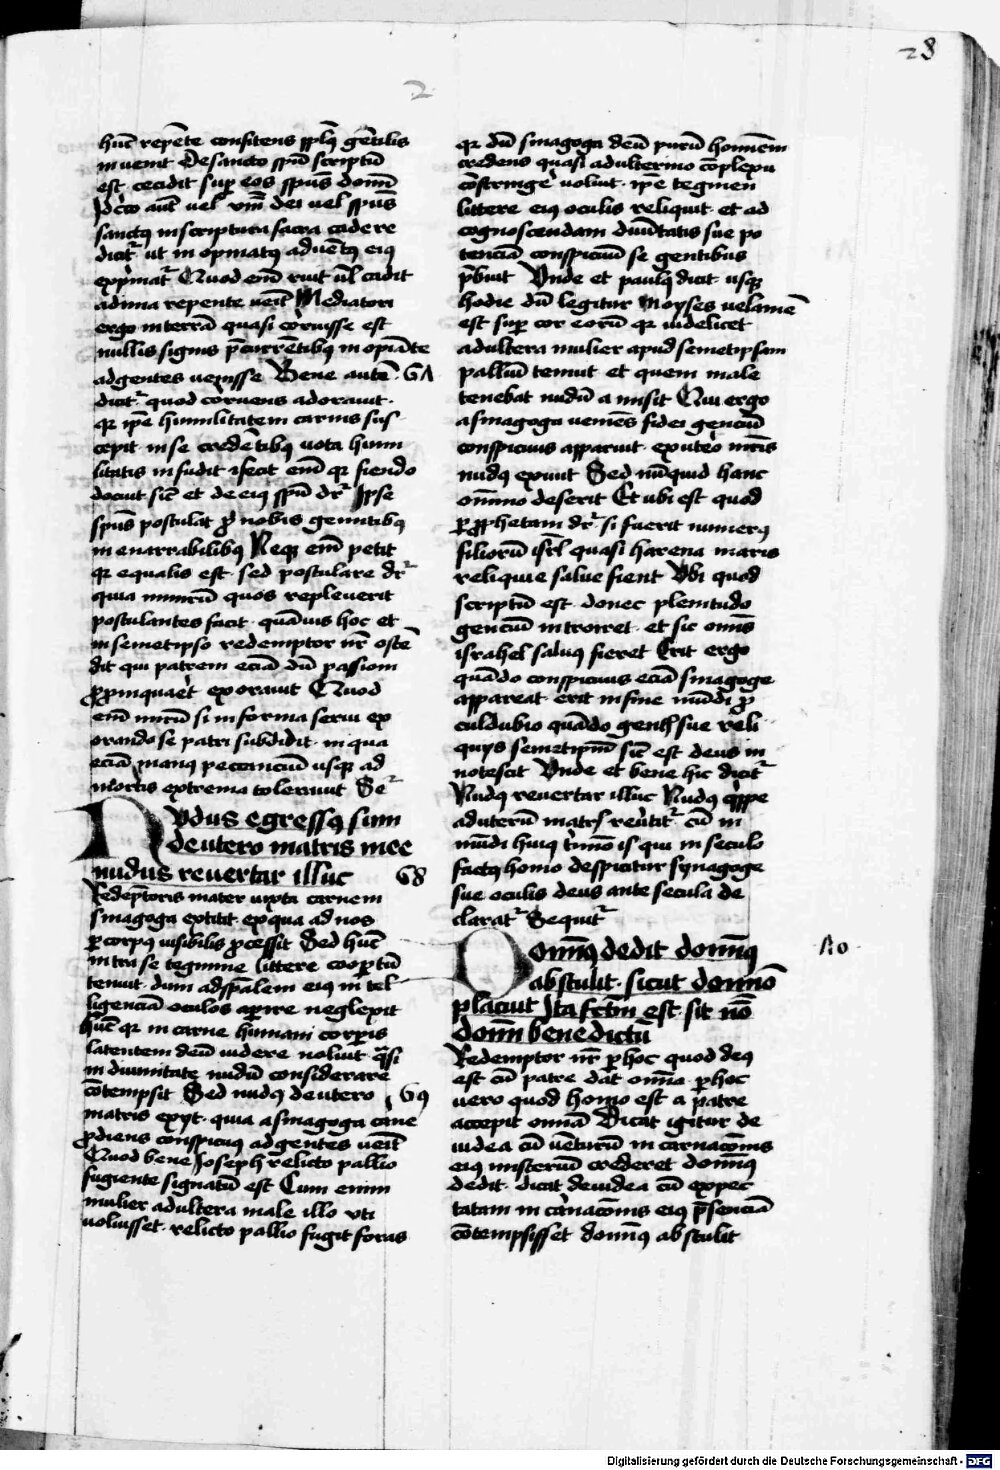 28
2
hūc repēte consitens pplūs gētilis
inuenit De sancto spū scriptū
est cecidit sup eos spūs domī
Idcᵒco aūt uel vnī dei uel spūs
sanctꝰ in scriptura sacra cadere
dicit᷑ ut inopinatꝰ aduētꝰ eiꝰ
exp̄mat᷑ Quod enī ruit ul̄ cadit
ad ima repente ueīt Mediatori
ergo in terrā quasi corruisse est
nullis signis p̄currētibꝰ inopīate
ad gentes uenisse Bene autē ·67
dicit᷑ quod corruens adorauit·
qꝛ ip̄e humilitatem carnis sus
cepit in se credētibꝰ uota humi
litatis infudit ⁊ fecit enī qꝛ fiendo
docuit sic̄ et de eiꝰ spū dr᷑ Ip̄se
spūs postulat ꝓ nobis gemitibꝰ
inenarrabilibꝰ Neqꝫ enī petit
qꝛ equalis est sed postulare dr᷑
quia nimirū quos repleuerit
postulantes facit quāuis hoc et
in semetipso redemptor nr̄ ostē
dit qui patrem eciā dū passioni
ꝓpinquaēt exorauit Quod
enī mirū si in forma serui ex
orando se patri subdidit in qua
eciā manꝰ peccanciū usqꝫ ad
mortis extrema tolerauit Se᷑
Nvdus egressꝰ sum
de utero matris mee
nudus reuertar illuc 68
Redēptoris mater iuxta carnem
sinagoga extitit ex qua ad nos
ꝑ corpꝰ uisibilis ꝓcessit Sed hūc
intra se tegmine littere coopertū
tenuit dum ad spālem eiꝰ intel
ligenciā oculos aperire neglexit
Hūc qꝛ in carne humani corpis
latentem deū uidere noluit q̄si
in diuinitate nudū considerare
cōtempsit Sed nudꝰ de utero · 69
matris exijt quia a sinagoga carne
ꝓdiens conspicuꝰ ad gentes ueīt
Quod bene Ioseph relicto pallio
fugiente signatū est Cum enim
mulier adultera male illo vti
uoluisset relicto pallio fugit foras
qꝛ dū sinagoga deū purū hominem
credens quasi adulterino cōplexu
cōstringē uoluit ip̄e tegmen
littere eiꝰ oculis reliquit et ad
cognoscendam diuītatis sue po
tenciā conspicuū se gentibus
p̄buit Unde et paulꝰ dicit usqꝫ
hodie dū legitur Moyses uelamē
est sup cor eorū qꝛ uidelicet
adultera mulier apud semetipsam
palliū tenuit et quem male
tenebat nudū amisit Qui ergo
a sinagoga ueniēs fidei genciū
conspicuus apparuit ex utēo mr̄is
nudꝰ exiuit Sed nūquid hanc
omīno deserit Et ubi est quod
ꝑ ꝓphetam dr᷑ si fuerit numerꝰ
filiorū isrl̄ quasi harena maris
reliquie salue fient Ubi quod
scriptū est donec plenitudo
genciū introiret et sic omīs
israhel saluꝰ fieret Erit ergo
quādo conspicuus eciā sinagoge
appareat erit in fine mūdi ꝓ
culdubio quādo gentꝭ sue reli
quijs semetipm̄ sic̄ est deus in
notescit Unde et bene hic dicit᷑
Nudꝰ reuertar illuc Nudꝰ q̄ppe
ad uterū matrꝭ reuītit᷑ cū in
mūdi huiꝰ tīmno is qui in seculo
factꝰ homo despicitur synagoge
sue oculis deus ante secula de
clarat᷑ Sequit᷑
Domīnꝰ dedit domīnꝰ
abstulit sicut domīo
placuit Ita fc̄tm est sit nō
domī benedictū
A0·
Redemptor nr̄ ꝑ hoc quod deꝰ
est cū patre dat omīa ꝑ hoc
uero quod homo est a patre
accepit omīa Dicat igitur de
iudea cū uēturū incarnacōnis
eiꝰ misteriū crederet domīnꝰ
dedit dicat de iudea cū expec
tatam incarnacōnis eiꝰ p̄senciā
cōtempsisset domīnꝰ abstulit
Digitalisierung gefördert durch die Deutsche Forschungsgemeinschaft - DFG